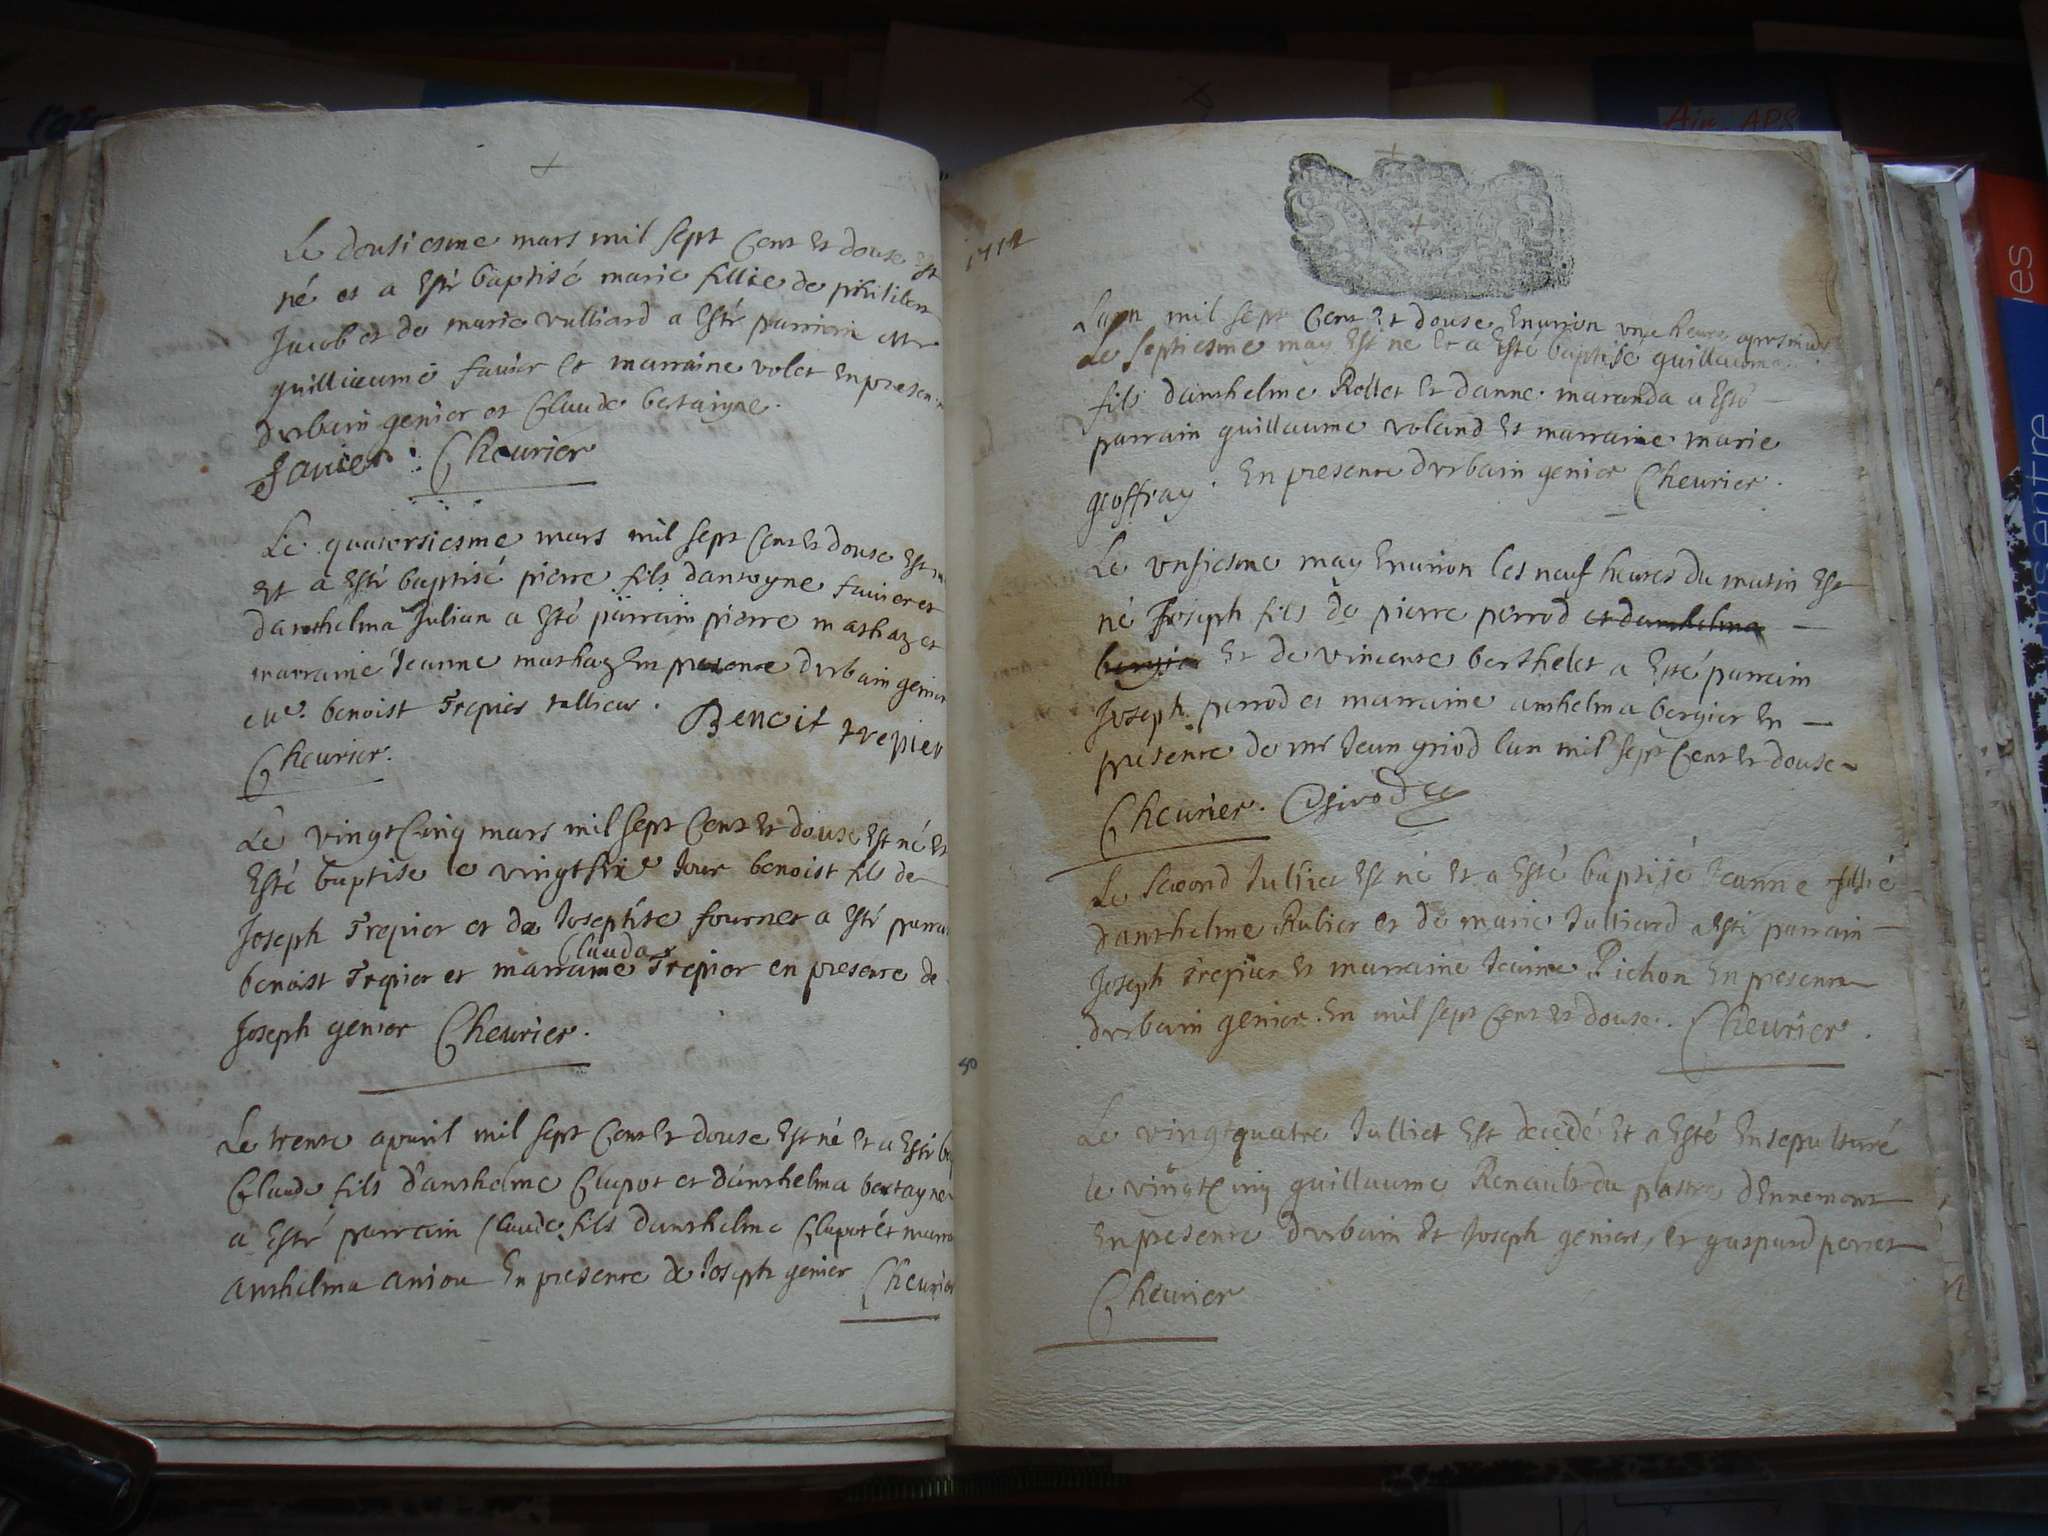 Le dousiesme mars mil sept Cent Et douse Est
né et a Esté baptisé marie fillie de philibert
Jacob et de marie vulliard a Esté parrain Mr
guillieaume favier Et marraine volet En presen
durbain genier et Claude bertaigne.
favier. Cheurier
Le quatorsiesme mars mil sept Cent Et douse Est
Et a Esté baptisé pierre fils dantoyne favier et
danthelma Julian a esté parrain pierre mathaz et
marraine Jeanne mathaz En presence durbain genier
benoist Trepier
Benoit trepier
Cheurier.
Le vingt Cinq mars mil sept Cent Et douse Est né Et
Esté baptise le vingt sixe Jour benoist fils de
Joseph Trepier et de Josephte fournet a Esté parrai
Clauda
benoist Trepier et marraine Trepier en presence de
Joseph genier Cheurier.
Le trente apvril mil sept Cent Et douse Est né Et a Esté ba
Claude fils d'anthelme Clapot et d'anthelma bertayne
a Esté parrain Claude fils danthelme Clapot et marra
anthelma aniou En presence de Joseph genier Cheurier
1712
Lann mil sept Cent Et douse Enuiron vne heure apres midy
Le septiesme may Est né Et a Esté baptisé guillaume
fils danthelme Rollet Et danne maranda a Esté
parrain guillaume voland Et marraine marie
geoffray. En presence durbain genier Cheurier.
Le vnsiesme may Enuiron les neuf heures du matin Est
né Joseph fils de pierre perrod et danthelma
bergier Et de vincente berthelet a Esté parrain
Joseph perrod et marraine anthelma bergier En
presence de mr Jean giriod lan mil sept Cent Et douse
Cheurier. Girod
Le second Julliet Est né Et a Esté baptisé Jeanne fillie
danthelme Rubier et de marie Julliard a Esté parrain
Joseph Trepier Et marraine Jeanne Pichon En presence
durbain genier. En mil sept Cent Et douse. Cheurier.
50
Le vingtquatre Julliet Est decedé Et a Esté Ensepulturé
le vingt Cinq guillaume Renault du plastre dEnnemont
En presence durbain Et Joseph geniers, et gaspard perret
Cheurier
Ain. APS
entre